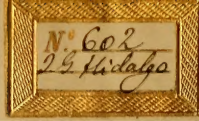 N.º 602
J. G. Hidalgo